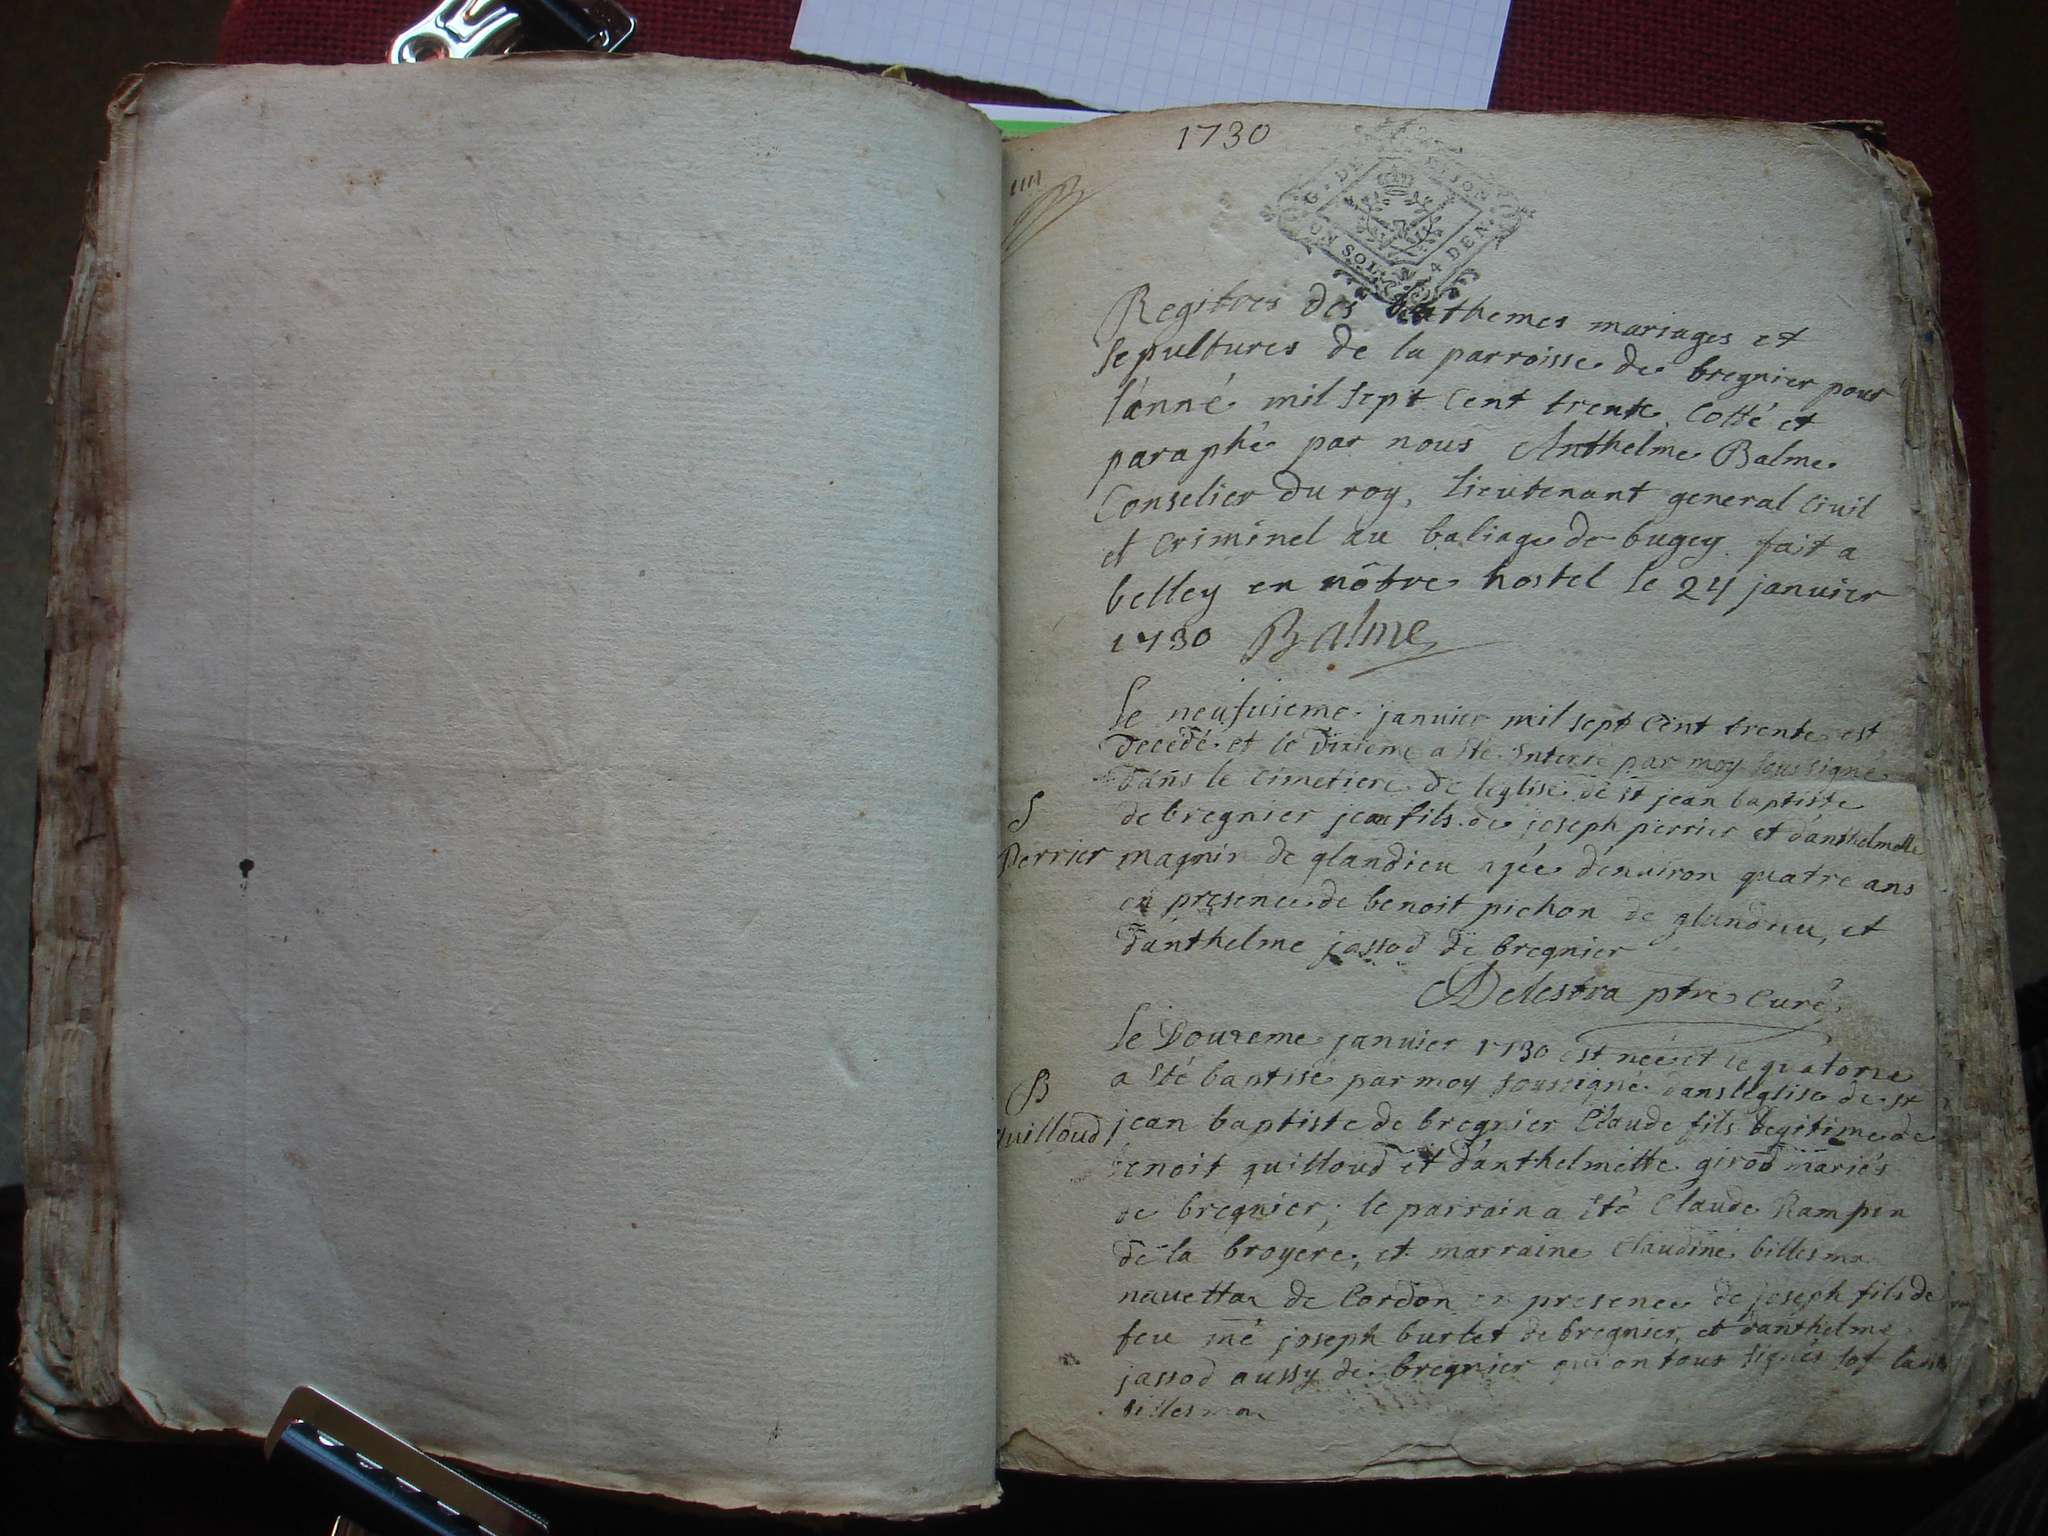 1730
G. DE
UN SOL. 4 DEN.
Regitres des bathemes mariages et
sepultures de la parroisse de bregnier pour
l'anné mil sept cent trente, cotté et
paraphé par nous Anthelme Balme
Conselier du roy, lieutenant general civil
et criminel au baliage de bugey. fait a
belley en nôtre hostel le 24 janvier
1730 Balme
le neufvieme janvier mil sept cent trente est
decedé et le dixieme a sté interré par moy soussigné
dans le cimetiere de leglise de st jean baptiste
S
de bregnier jean fils de joseph perrier et d'anthelmette
Perrier
magnin de glandieu agée d'environ quatre ans
en presence de benoit pichon de glandieu, et
d'anthelme jassod de bregnier
Delestra ptre curé
le douzeme janvier 1730 est neé et le quatorze
B
a sté baptisé par moy soussigné dans leglise de st
guilloud
jean baptiste de bregnier Claude fils legitime de
benoit guilloud et d'anthelmette girod mariés
de bregnier; le parrain a sté Claude Rampin
de la broyere, et marraine Claudine billesma
navetta de Cordon en presence de joseph fils de
feu mé joseph burlet de bregnier, et d'anthelme
jassod aussy de bregnier qui on tous signés sof ladite
billesma